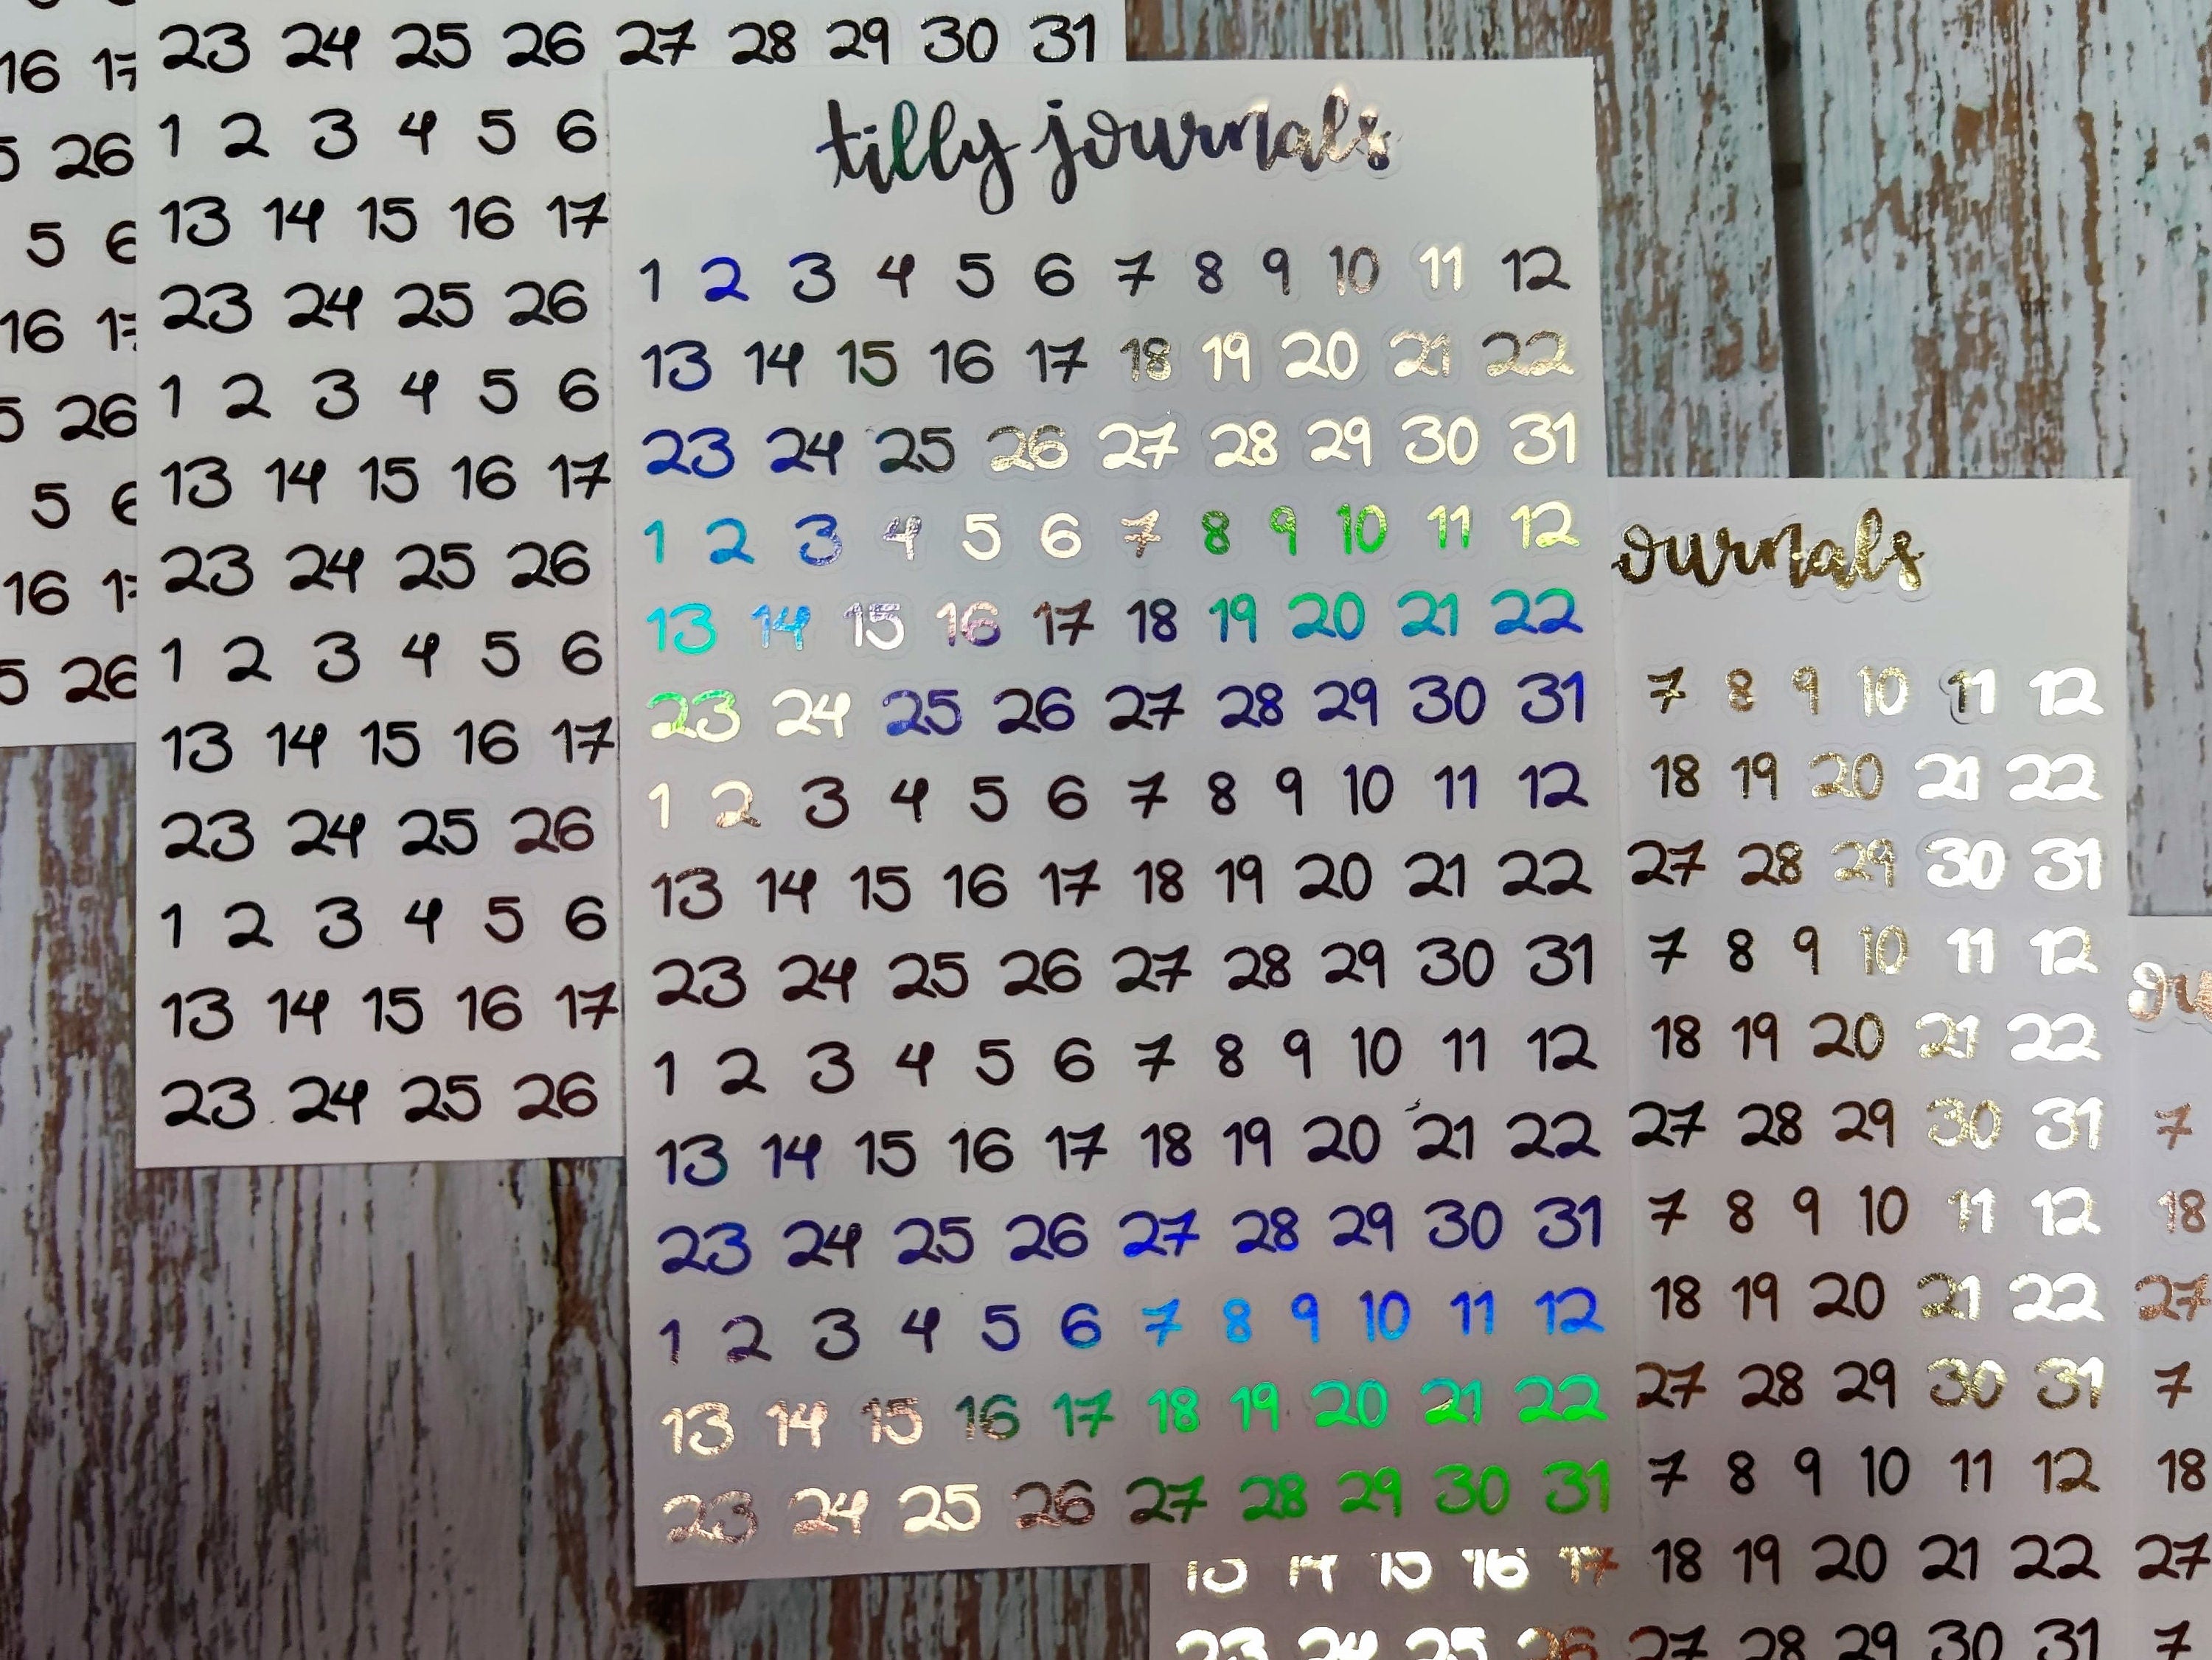 16 17
26
5 6
16 17
26
5 6
16 17
26
23 24 25 26 27 28 29 30 31
1 2 3 4 5 6
13 14 15 16 17
23 24 25 26
1 2 3 4 5 6
13 14 15 16 17
23 24 25 26
1 2 3 4 5 6
13 14 15 16 17
23 24 25 26
1 2 3 4 5 6
13 14 15 16 17
23 24 25 26
tilly journals
1 2 3 4 5 6 7 8 9 10 11 12
13 14 15 16 17 18 19 20 21 22
23 24 25 26 27 28 29 30 31
1 2 3 4 5 6 7 8 9 10 11 12
13 14 15 16 17 18 19 20 21 22
23 24 25 26 27 28 29 30 31
1 2 3 4 5 6 7 8 9 10 11 12
13 14 15 16 17 18 19 20 21 22
23 24 25 26 27 28 29 30 31
1 2 3 4 5 6 7 8 9 10 11 12
13 14 15 16 17 18 19 20 21 22
23 24 25 26 27 28 29 30 31
1 2 3 4 5 6 7 8 9 10 11 12
13 14 15 16 17 18 19 20 21 22
23 24 25 26 27 28 29 30 31
ournals
7 8 9 10 11 12
18 19 20 21 22
27 28 29 30 31
7 8 9 10 11 12
18 19 20 21 22
27 28 29 30 31
7 8 9 10 11 12
18 19 20 21 22
27 28 29 30 31
7 8 9 10 11 12
13 14 15 16 17 18 19 20 21 22
23 24 25 26 27 28 29 30 31
ou
7
18
27
7
18
27
7